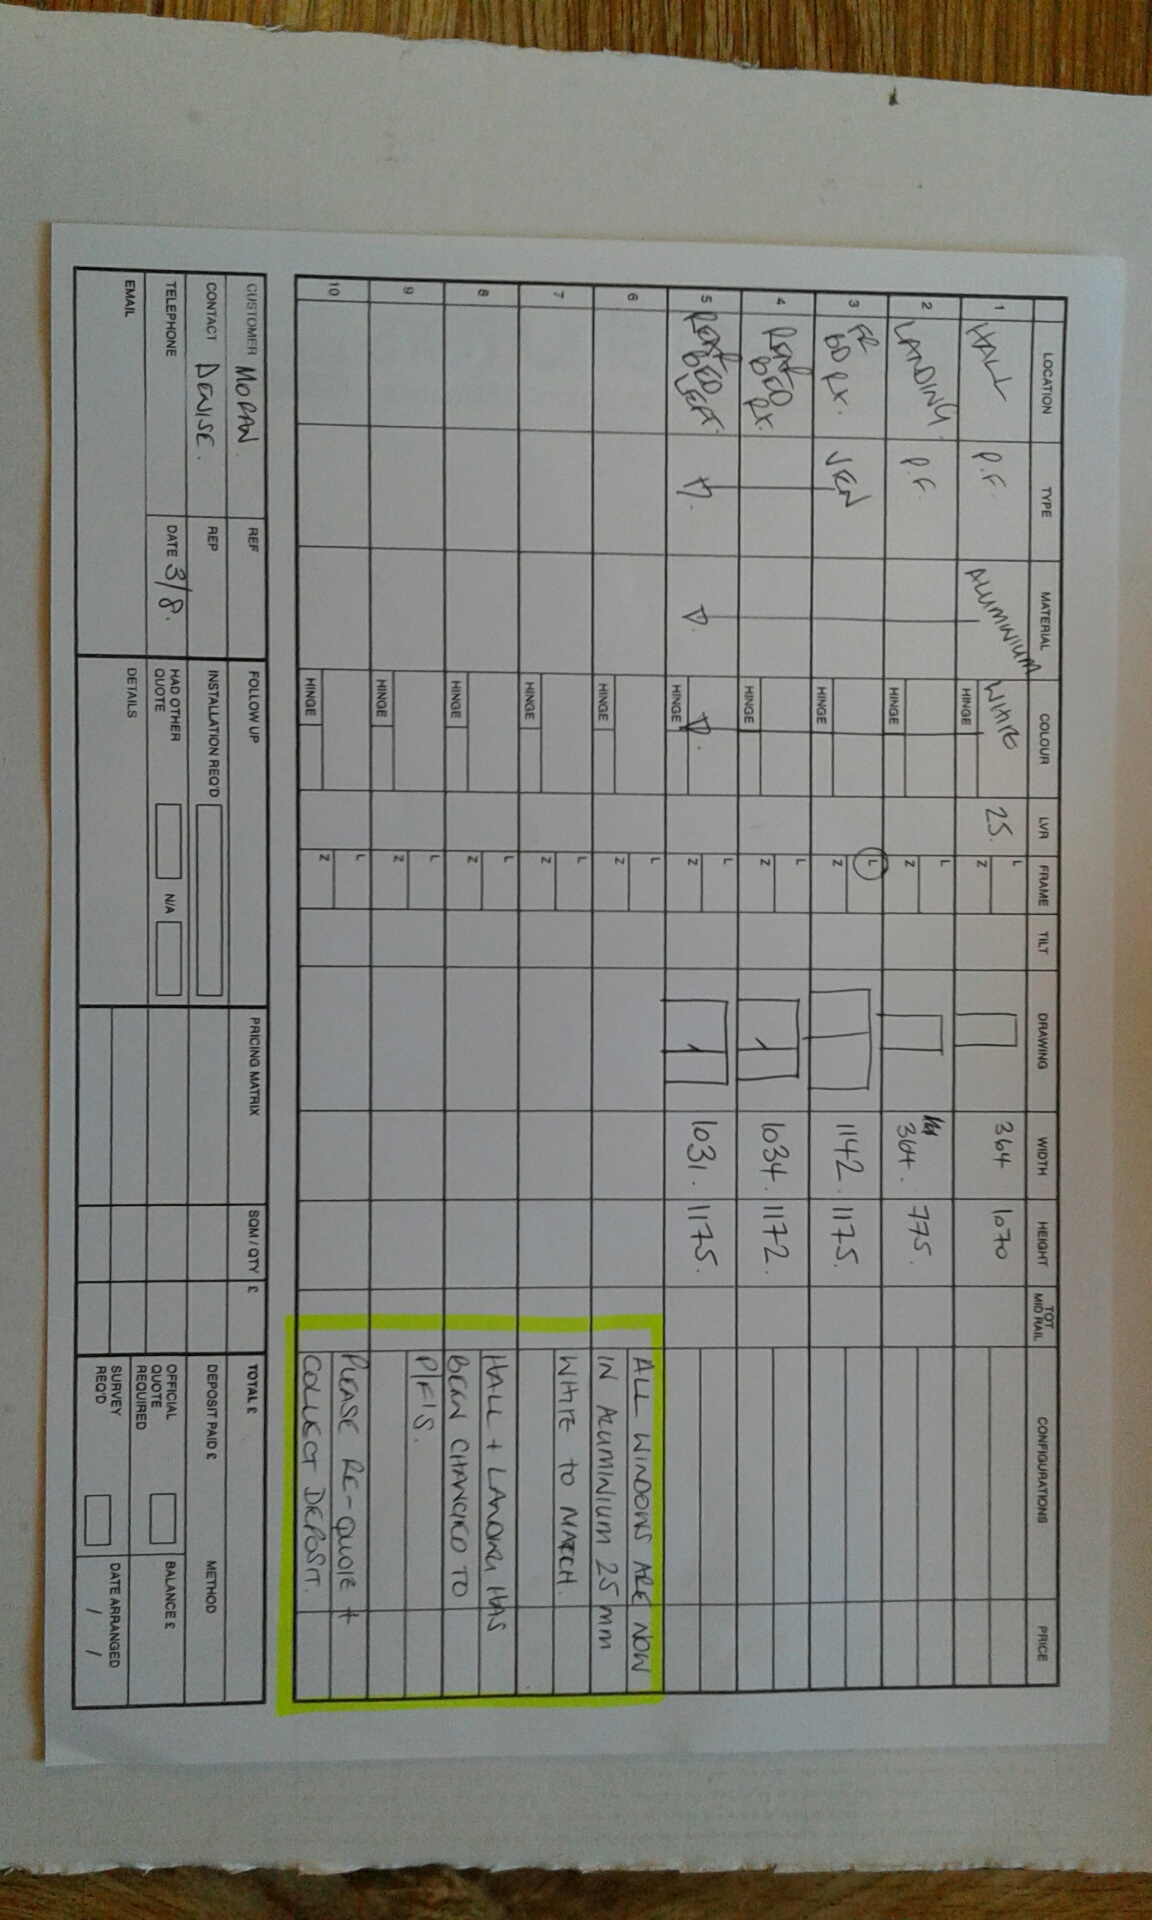 LOCATION TYPE MATERIAL COLOUR LVR FRAME TILT DRAWING WIDTH HEIGHT TOT MID RAIL CONFIGURATIONS PRICE
1 HALL P.F. ALUMINIUM WHITE HINGE 25. L Z 364 1070
2 LANDING. P.F. HINGE L Z 364. 775.
3 FR BD RX. VEN HINGE L Z 1142. 1175.
4 REAR BED RX. HINGE L Z 1034. 1172.
5 REAR BED LEFT. HINGE L Z 1031. 1175.
6 HINGE L Z
7 HINGE L Z
8 HINGE L Z
9 HINGE L Z
10 HINGE L Z
ALL WINDOWS ARE NOW
IN ALUMINIUM 25mm
WHITE TO MATCH.
HALL + LANDING HAS
BEEN CHANGED TO
P/F'S.
PLEASE RE-QUOTE +
COLLECT DEPOSIT.
CUSTOMER MORAN. REF FOLLOW UP PRICING MATRIX SQM / QTY £ TOTAL £
CONTACT DENISE. REP INSTALLATION REQ'D DEPOSIT PAID £ METHOD
TELEPHONE DATE 3/8. HAD OTHER QUOTE N/A OFFICIAL QUOTE REQUIRED BALANCE £
EMAIL DETAILS SURVEY REQ'D DATE ARRANGED / /